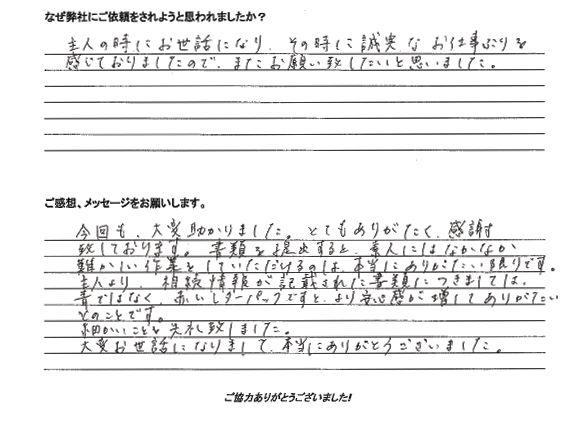 なぜ弊社にご依頼をされようと思われましたか？
主人の時にお世話になり、その時に誠実なお仕事ぶりを
感じておりましたので、またお願い致したいと思いました。
ご感想、メッセージをお願いします。
今回も、大変助かりました。とてもありがたく、感謝
致しております。書類を提出すると、素人にはなかなか
難かしい作業をしていただけるのは、本当にありがたい限りです。
主人より、相続情報が記載された書類につきましては、
青ではなく、赤いレターパックですと、より安心感が増してありがたい
とのことです。
細かいことを失礼致しました。
大変お世話になりまして、本当にありがとうございました。
ご協力ありがとうございました！